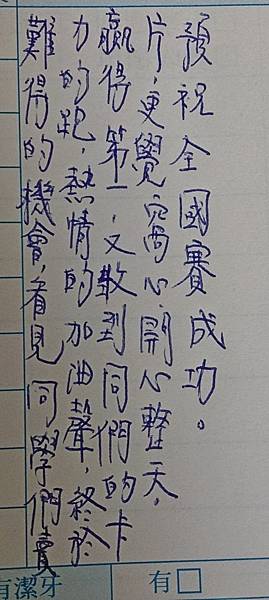 難得的機會,看見同學們賣
力的跑,熱情的加油聲,終於
贏得第一,又收到同們的卡
片,更覺窩心,開心整天,
預祝全國賽成功。
有潔牙
有□